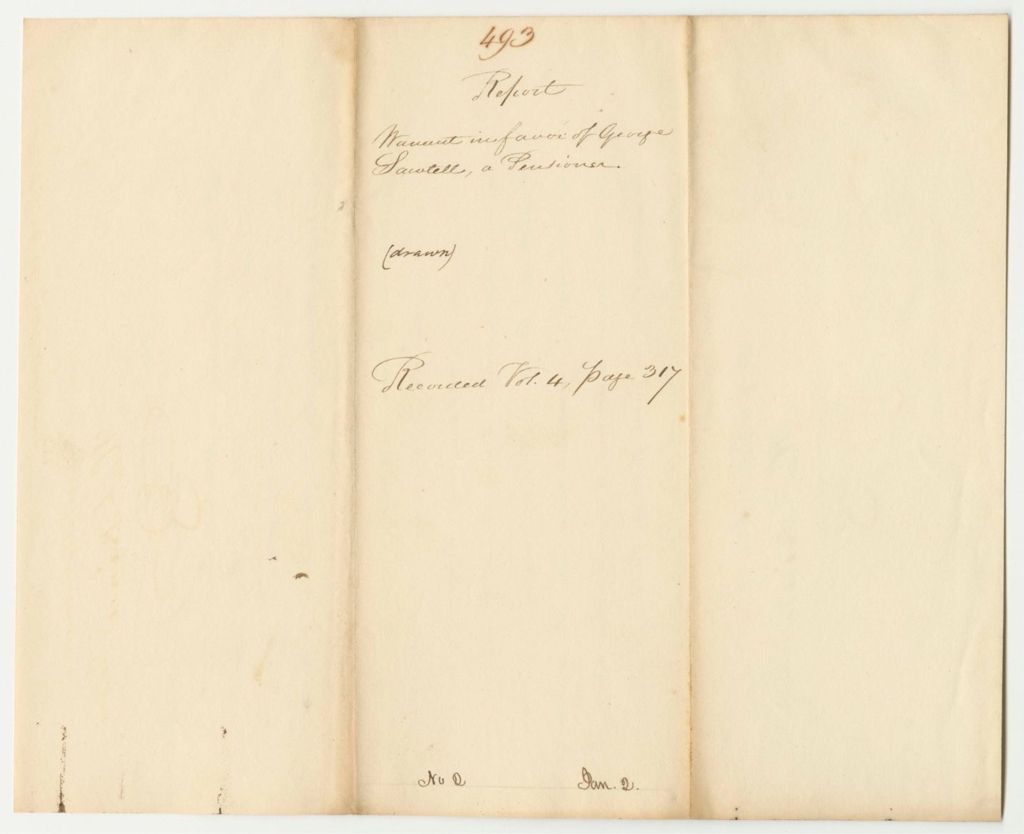 493
Report
Warrant in favor of George
Sawtell, a Pensioner.
(drawn)
Recorded Vol. 4, Page 317
No 2
Jan. 2.